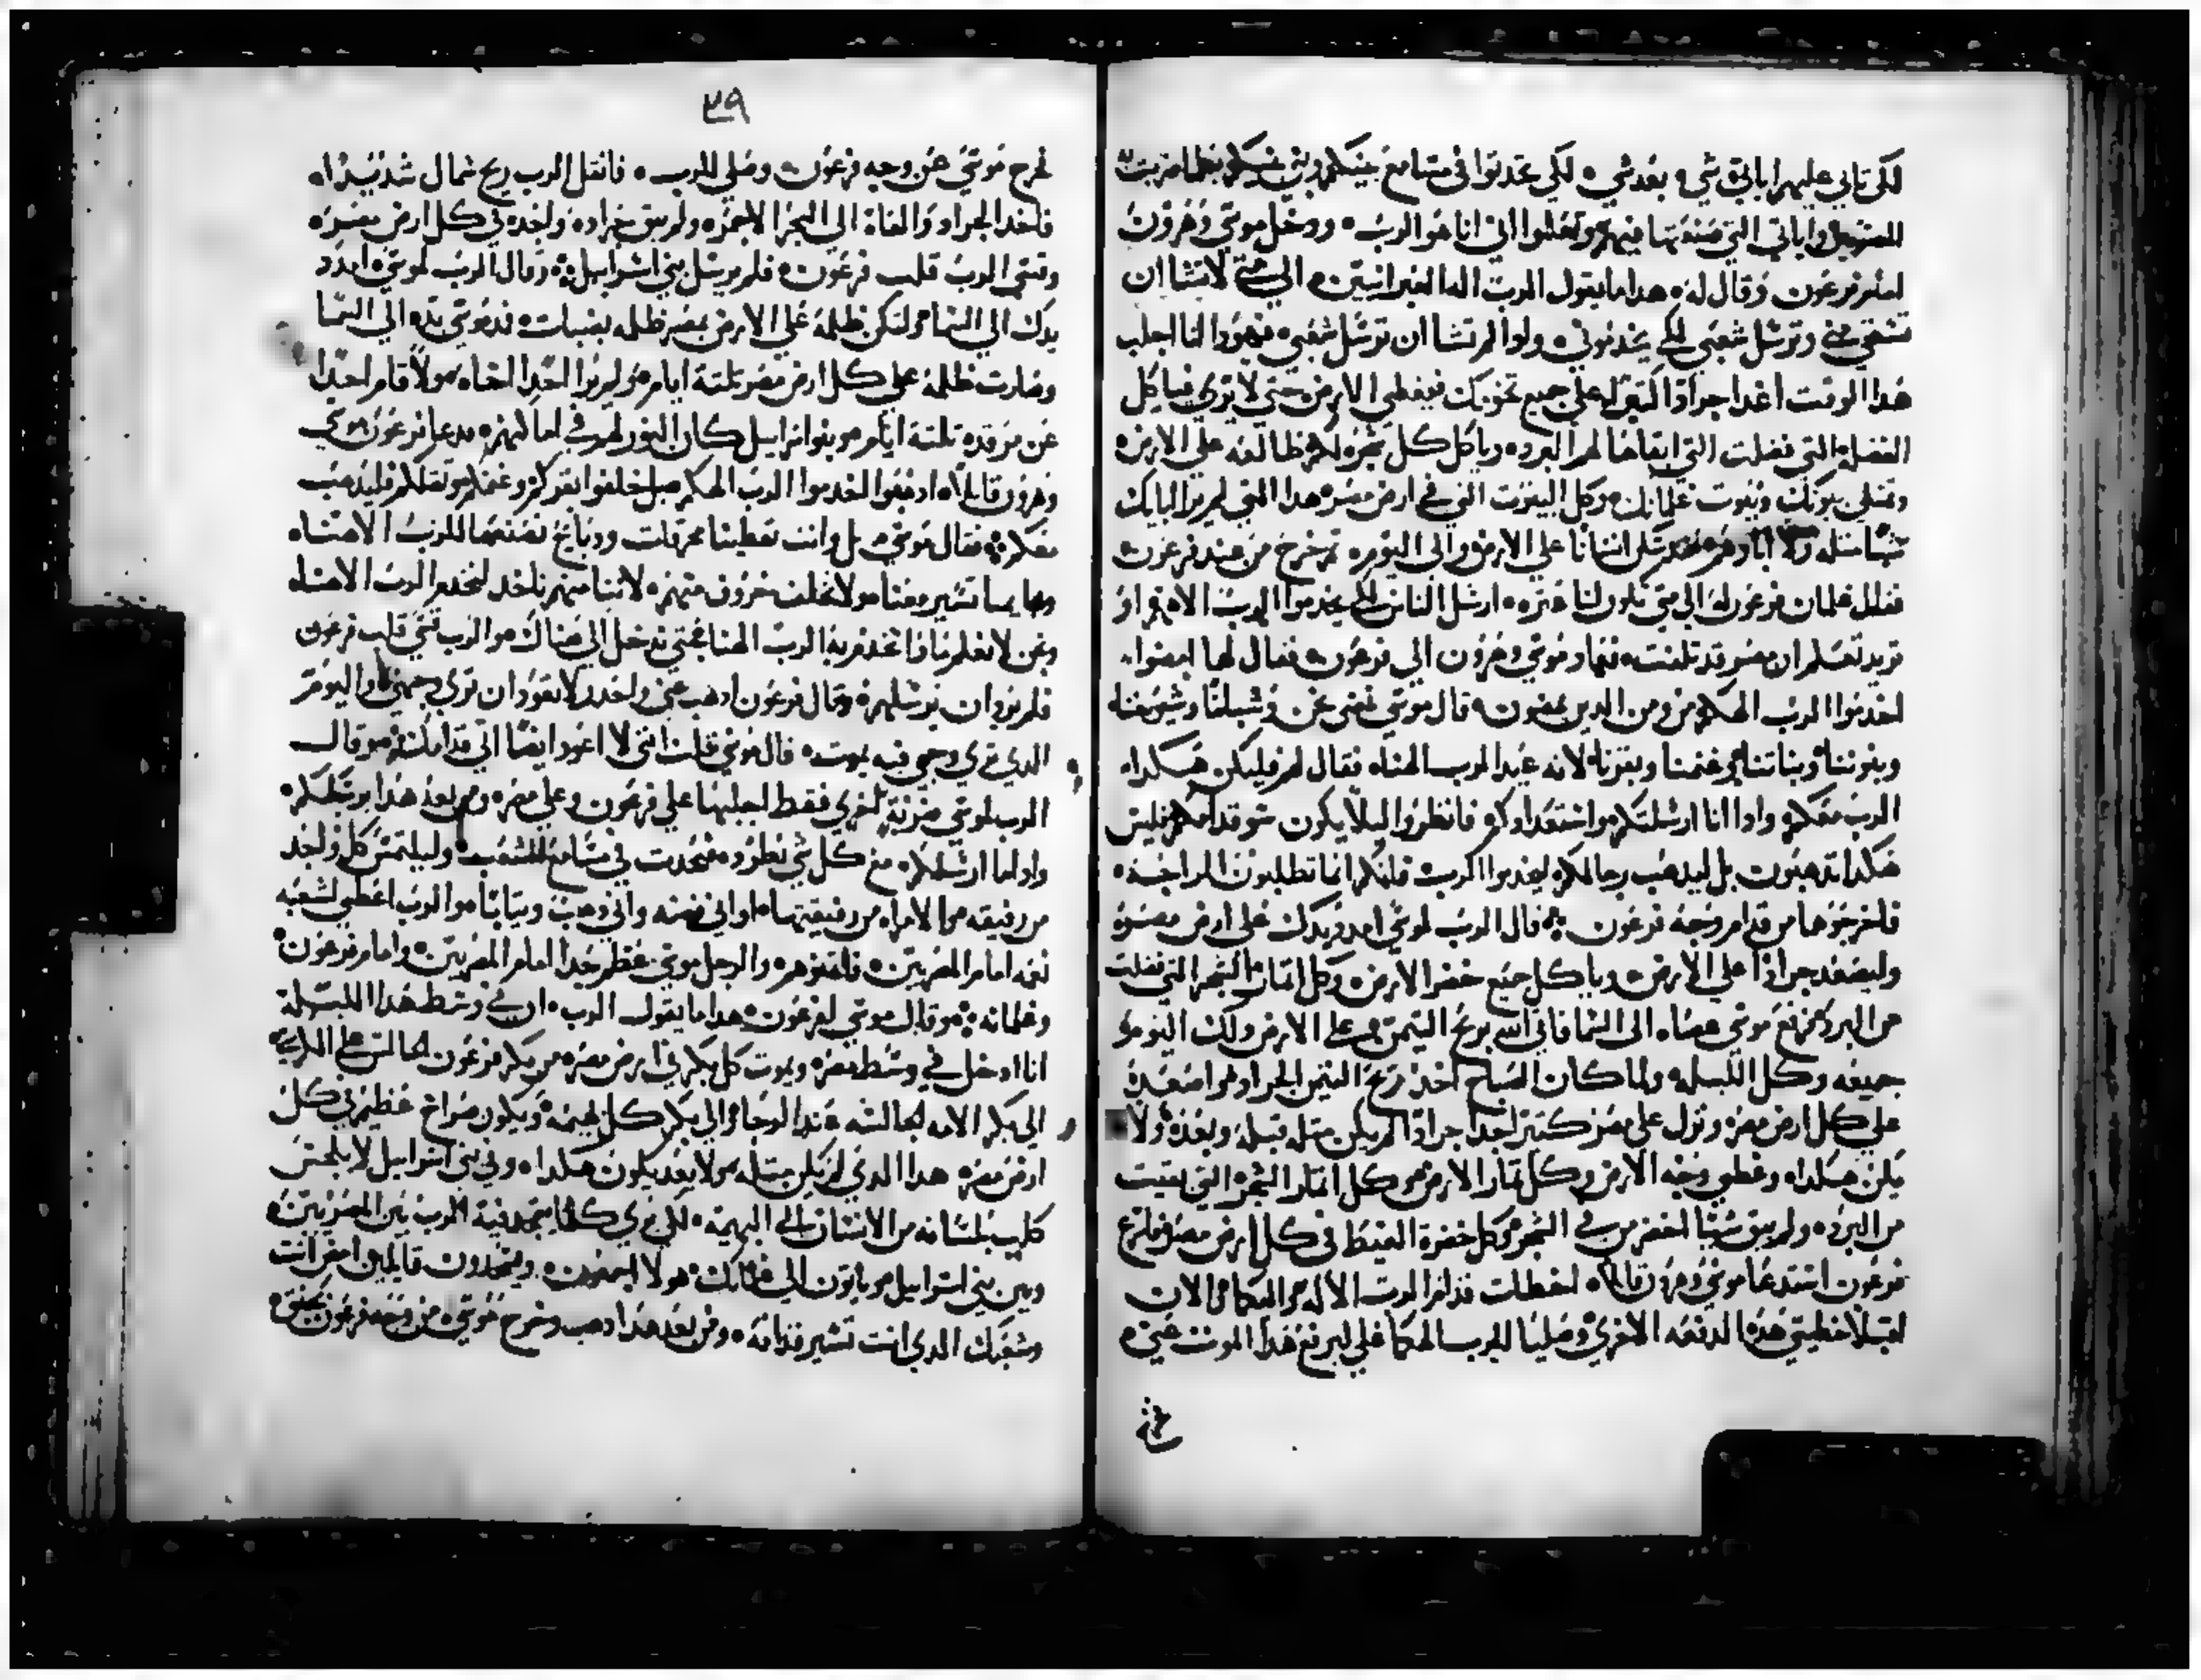 لكي تاتي عليهم اياتي شي بعد شي لكي تحدثوا في مسامع بنيكم وبني بنيكم بكلما ضربت به
للمصريين واياتي التي صنعتها فيهم وتعلموا اني انا هو الرب ودخل موسي وهرون
امام فرعون وقال له هدا ما يقول الرب اله العبرانيين الي متي لا تشا ان
تستحي مني وترسل شعبي لكي يخدموني ولو لم تشا ان ترسل شعبي فهودا انا اجلب
هدا الوقت اغدا جرادا كثير علي جميع تخومك فيغطي الارض حتي لا تري فياكل
الفضلة التي فضلت التي ابقاها لهم البرد وياكل كل شجرة لكم طالعه علي الارض
وتمتلي بيوتك وبيوت غلمانك وكل البيوت التي في ارض مصر هدا التي لم يرا اباك
شيا مثله ولا اباوهم علي الارض والي اليوم ثم خرج من عند فرعون
فقال غلمان فرعون له الي متي تكون لنا عثره ارسل الناس لكي يخدموا الرب الاههم او
تريد تعلم ان مصر قد تلفت فعاد موسي وهرون الي فرعون فقال لهما امضوا
اخدموا الرب الهكم من ومن الدين يمضون قال موسي نمضي نحن وشبابنا وشيوخنا
وبنونا وبناتنا وغنمنا وبقرنا لانه عيد الرب الهنا فقال لهم فليكن هكدا
الرب معكم وادا انا ارسلتكم واستعدادكم فانظروا ليلا يكون سو قدامكم فليس
هكدا تدهبون بل ليدهب رجالكم ليخدموا الرب فانكم انما تطلبون الراحة
فاخرجوهما من قدام وجه فرعون قال الرب لموسي امدد يدك علي ارض مصر
وليصعد جرادا علي الارض وياكل جميع خضر الارض وكل اتمار الشجر التي فضلت
من البرد فرفع موسي عصاه الي السما فاتي الرب بريح التيمن علي الارض دلك اليوم
جميعه وكل الليله ولما كان الصباح اخذ ريح التيمن الجراد فاصعده
علي كل ارض مصر ونزل علي مصر كتير جدا جرادا لم يكن مثله قبله وبعده ولا
يكن هكدا وغطي وجه الارض وكل تمار الارض وكل اتمار الشجر التي بقيت
من البرد ولم يبق شيا اخضر من في الشجر وكل خضرة الغيط في كل ارض مصر فاسرع
فرعون استدعا موسي وهرون قايلا اخطات قدام الرب الاله الهكما والان
اقبلا خطيتي هده الدفعه الاخري وصليا للرب الهكما علي ليرفع هدا الموت عني
فخرج
٣٩
خرج موسي عن وجه فرعون وصلي للرب فانقل الرب ريح شمال شديدا
فاخد الجراد والقاه الي البحر الاحمر ولم يبق جراده واحده في كل ارض مصر
وقسي الرب قلب فرعون فلم يرسل بني اسراييل وقال الرب لموسي امدد
يدك الي السما ولتكن ظلمة علي الارض بمصر ظلمه بضباب فمد موسي يده الي السما
وصارت ظلمة علي كل ارض مصر تلتة ايام ولم يرا احدا اخاه ولا قام احدا
عن مرقده تلتة ايام وبنوا اسراييل كان النور لهم في اماكنهم فدعا فرعون موسي
وهرون قايلا ادهبوا اخدموا الرب الهكم بل خلفوا بقركم وغنمكم وتقلكم فليدهب
معكم فقال موسي بل وانت تعطينا محرقات ودبايح نصنعها للرب الاهنا
وبهايمنا تسير معنا ولا نخلف خروف منهم لاننا منهم ناخد لنخدم الرب الاهنا
ونحن لا نعلم مادا نخدم به الرب الهنا حتي ندخل الي هناك والرب قسي قلب فرعون
فلم يرد ان يرسلهم وقال فرعون ادهب عني واحدر لا تعود ان تري وجهي واليوم
الدي تري وجهي فيه تموت قال موسي قلت انني لا اعود ايضا اتي قدامك وقال
الرب لموسي ضربة اخري فقط اجلبها علي فرعون وعلي مصر ومن بعد هدا يرسلكم
وادا ما ارسلكم مع كل شي يطرد فتحدت في مسامع الشعب وليلتمس كل واحد
من رفيقه والامراه من رفيقتها اواني فضه واني دهب وتيابا والرب اعطي لشعبه
نعمه امام المصريين فاعتوهم والرجل موسي عظم جدا امام المصريين وامام فرعون
وغلمانه وقال موسي لفرعون هدا ما يقول الرب ان في وسط هدا الليله
انا ادخل في وسط مصر ويموت كل بكر في ارض مصر من بكر فرعون الجالس علي الكرسي
الي بكر الامه الجالسه عند الرحا والي بكر كل بهيمه ويكون صراخ عظيم في كل
ارض مصر هدا الدي لم يكن مثله ولا بعد يكون هكدا وفي بني اسراييل لا يلحس
كلب بلسانه من الانسان الي البهيمة لكي تري كلما يتمجد فيه الرب بين المصريين
وبين بني اسراييل وياتون الي غلمانك هولا اجمعون ويسجدون قايلين امض انت
وشعبك الدي انت تسير قدامه ومن بعد هدا ادهب وخرج موسي من وجه فرعون بحنق